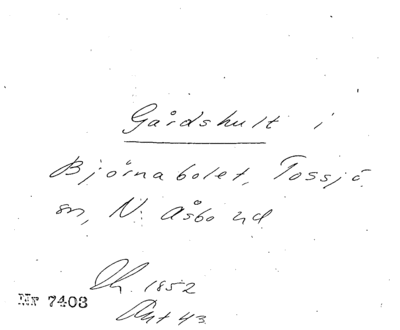 Gårdshult i
Björnabolet, Tossjö
sn, N. Åsbo hd
1852
Nr 7403
43